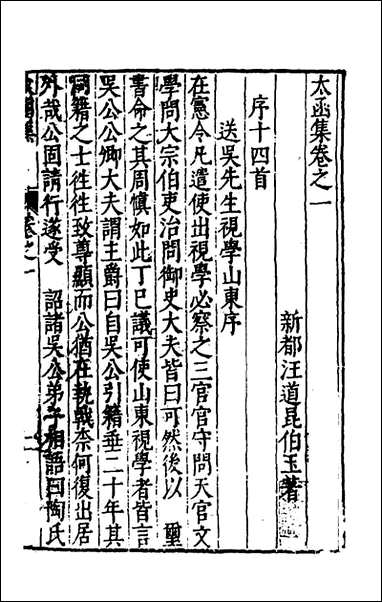 太函集卷之一
新都汪道昆伯玉著
序十四首
送吳先生視學山東序
在憲令凡遣使出視學必察之三官官守問天官文
學問大宗伯吏治問御史大夫皆曰可然後以　璽
書命之其周慎如此丁巳議可使山東視學者皆言
吳公公卿大夫謂主爵曰自吳公引籍垂二十年其
同籍之士徃徃致尊顯而公猶在執戟柰何復出居
外哉公固請行遂受　詔諸吳公弟子相語曰陶氏
太函集　卷之一　一